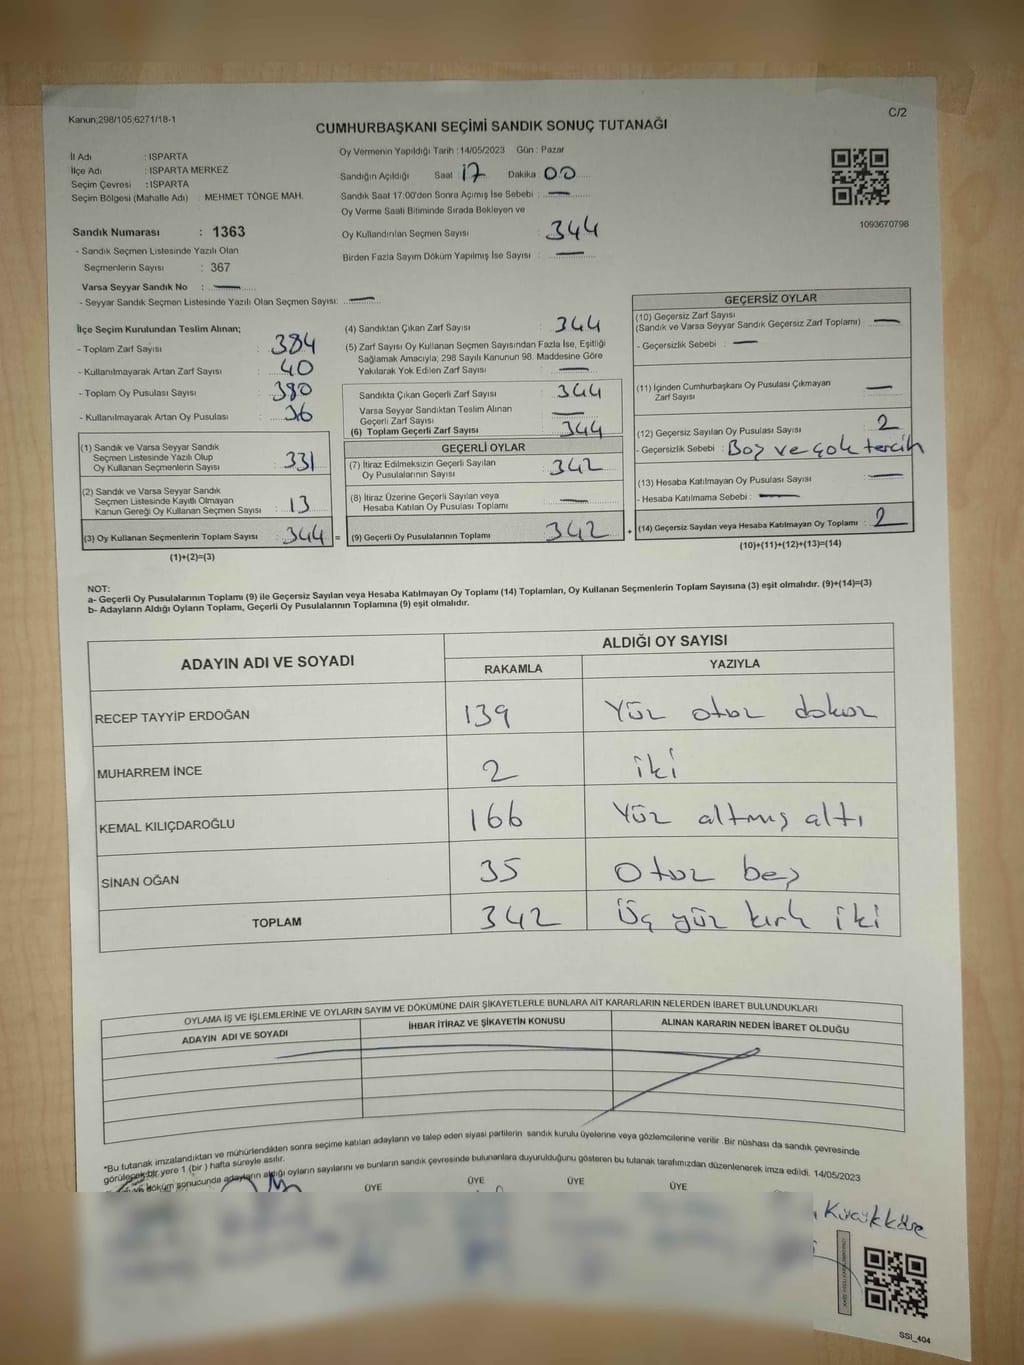 Kanun;298/105;6271/18-1
C/2
CUMHURBAŞKANI SEÇİMİ SANDIK SONUÇ TUTANAĞI
İl Adı : ISPARTA
İlçe Adı : ISPARTA MERKEZ
Seçim Çevresi : ISPARTA
Seçim Bölgesi (Mahalle Adı) : MEHMET TÖNGE MAH.
Sandık Numarası : 1363
- Sandık Seçmen Listesinde Yazılı Olan
Seçmenlerin Sayısı : 367
Varsa Seyyar Sandık No : —
- Seyyar Sandık Seçmen Listesinde Yazılı Olan Seçmen Sayısı: —
Oy Vermenin Yapıldığı Tarih : 14/05/2023 Gün : Pazar
Sandığın Açıldığı Saat 17 Dakika 00
Sandık Saat 17:00'den Sonra Açımış İse Sebebi : —
Oy Verme Saati Bitiminde Sırada Bekleyen ve
Oy Kullandırılan Seçmen Sayısı : 344
Birden Fazla Sayım Döküm Yapılmış İse Sayısı : —
1093670798
İlçe Seçim Kurulundan Teslim Alınan;
- Toplam Zarf Sayısı : 384
- Kullanılmayarak Artan Zarf Sayısı : 40
- Toplam Oy Pusulası Sayısı : 380
- Kullanılmayarak Artan Oy Pusulası : 36
(1) Sandık ve Varsa Seyyar Sandık
Seçmen Listesinde Yazılı Olup
Oy Kullanan Seçmenlerin Sayısı : 331
(2) Sandık ve Varsa Seyyar Sandık
Seçmen Listesinde Kayıtlı Olmayan
Kanun Gereği Oy Kullanan Seçmen Sayısı : 13
(3) Oy Kullanan Seçmenlerin Toplam Sayısı : 344 =
(1)+(2)=(3)
(4) Sandıktan Çıkan Zarf Sayısı : 344
(5) Zarf Sayısı Oy Kullanan Seçmen Sayısından Fazla İse, Eşitliği
Sağlamak Amacıyla; 298 Sayılı Kanunun 98. Maddesine Göre
Yakılarak Yok Edilen Zarf Sayısı : —
Sandıkta Çıkan Geçerli Zarf Sayısı : 344
Varsa Seyyar Sandıktan Teslim Alınan
Geçerli Zarf Sayısı : —
(6) Toplam Geçerli Zarf Sayısı : 344
GEÇERLİ OYLAR
(7) İtiraz Edilmeksizin Geçerli Sayılan
Oy Pusulalarının Sayısı : 342
(8) İtiraz Üzerine Geçerli Sayılan veya
Hesaba Katılan Oy Pusulası Toplamı : —
(9) Geçerli Oy Pusulalarının Toplamı : 342 +
GEÇERSİZ OYLAR
(10) Geçersiz Zarf Sayısı
(Sandık ve Varsa Seyyar Sandık Geçersiz Zarf Toplamı) : —
- Geçersizlik Sebebi : —
(11) İçinden Cumhurbaşkanı Oy Pusulası Çıkmayan
Zarf Sayısı : —
(12) Geçersiz Sayılan Oy Pusulası Sayısı : 2
- Geçersizlik Sebebi : Boş ve çok tercih
(13) Hesaba Katılmayan Oy Pusulası Sayısı : —
- Hesaba Katılmama Sebebi : —
(14) Geçersiz Sayılan veya Hesaba Katılmayan Oy Toplamı : 2
(10)+(11)+(12)+(13)=(14)
NOT:
a- Geçerli Oy Pusulalarının Toplamı (9) ile Geçersiz Sayılan veya Hesaba Katılmayan Oy Toplamı (14) Toplamları, Oy Kullanan Seçmenlerin Toplam Sayısına (3) eşit olmalıdır. (9)+(14)=(3)
b- Adayların Aldığı Oyların Toplamı, Geçerli Oy Pusulalarının Toplamına (9) eşit olmalıdır.
ADAYIN ADI VE SOYADI
ALDIĞI OY SAYISI
RAKAMLA YAZIYLA
RECEP TAYYİP ERDOĞAN 139 Yüz otuz dokuz
MUHARREM İNCE 2 iki
KEMAL KILIÇDAROĞLU 166 Yüz altmış altı
SİNAN OĞAN 35 Otuz beş
TOPLAM 342 Üç yüz kırk iki
OYLAMA İŞ VE İŞLEMLERİNE VE OYLARIN SAYIM VE DÖKÜMÜNE DAİR ŞİKAYETLERLE BUNLARA AİT KARARLARIN NELERDEN İBARET BULUNDUKLARI
ADAYIN ADI VE SOYADI İHBAR İTİRAZ VE ŞİKAYETİN KONUSU ALINAN KARARIN NEDEN İBARET OLDUĞU
*Bu tutanak imzalandıktan ve mühürlendikten sonra seçime katılan adayların ve talep eden siyasi partilerin sandık kurulu üyelerine veya gözlemcilerine verilir .Bir nüshası da sandık çevresinde
görülecek bir yere 1 (bir ) hafta süreyle asılır.
döküm sonucunda adayların aldığı oyların sayılarını ve bunların sandık çevresinde bulunanlara duyurulduğunu gösteren bu tutanak tarafımızdan düzenlenerek imza edildi. 14/05/2023
ÜYE ÜYE ÜYE ÜYE
SSI_404